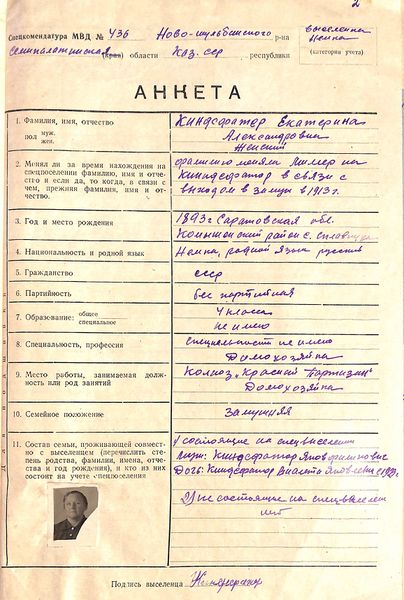 2
Спецкомендатура МВД № 436 Ново-шульбинского р-на выселенка
Семипалатинская (края) области Каз. сср республики немка
(категория учета)
АНКЕТА
1. Фамилия, имя, отчество Киндсфатер Екатерина
пол муж. Александровна
жен. Женский
2. Менял ли за время нахождения на фамилию меняли Миллер на
спецпоселении фамилию, имя и отче- Киндсфатор в связи с
ство и если да, то когда, в связи с выходом в замуж в 1913 г.
чем, прежняя фамилия, имя и от-
чество.
3. Год и место рождения 1893 г Саратовская обл.
район с.
4. Национальность и родной язык Немка, родной язык русский
5. Гражданство ссср
6. Партийность бес партийная
7. Образование: общее 4 класса
специальное не имею
8. Специальность, профессия специальность не имею
Домохозяйка
9. Место работы, занимаемая долж- Колхоз „Красный Партизан"
ность или род занятий Домохозяйка
10. Семейное положение Замужняя
11. Состав семьи, проживающей совмест- 1) состоящие на спецвыселении
но с выселенцем (перечислить сте- муж: Киндсфатор Яков
пень родства, фамилии, имена, отче- Дочь: Киндсфатор Виолета Яковлевна с 1929 г.
ства и год рождения), и кто из них
состоит на учете спецпоселения 2) не состоящие на спецвыселен
нет
Для подшивки
Подпись выселенца